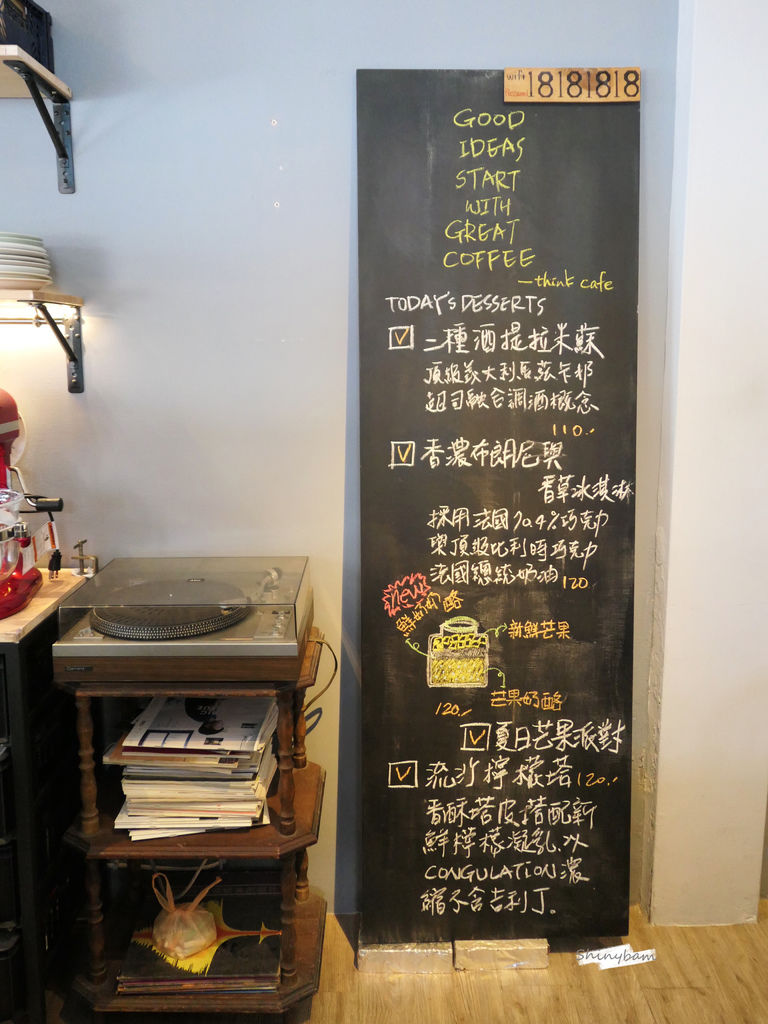 wifi
18181818
GOOD
IDEAS
START
WITH
GREAT
COFFEE
—think cafe
TODAY'S DESSERTS
二種酒提拉米蘇
頂級義大利馬茲卡邦
起司融合調酒概念
110.-
香濃布朗尼與
香草冰淇淋
採用法國70.4%巧克力
與頂級比利時巧克力
法國總統奶油120
new
鮮奶奶酪
新鮮芒果
芒果奶酪
120.-
夏日芒果派對
流沙檸檬塔120.-
香酥塔皮搭配新
鮮檸檬凝乳以
CONGULATION濃
縮不含吉利丁。
Shinybam